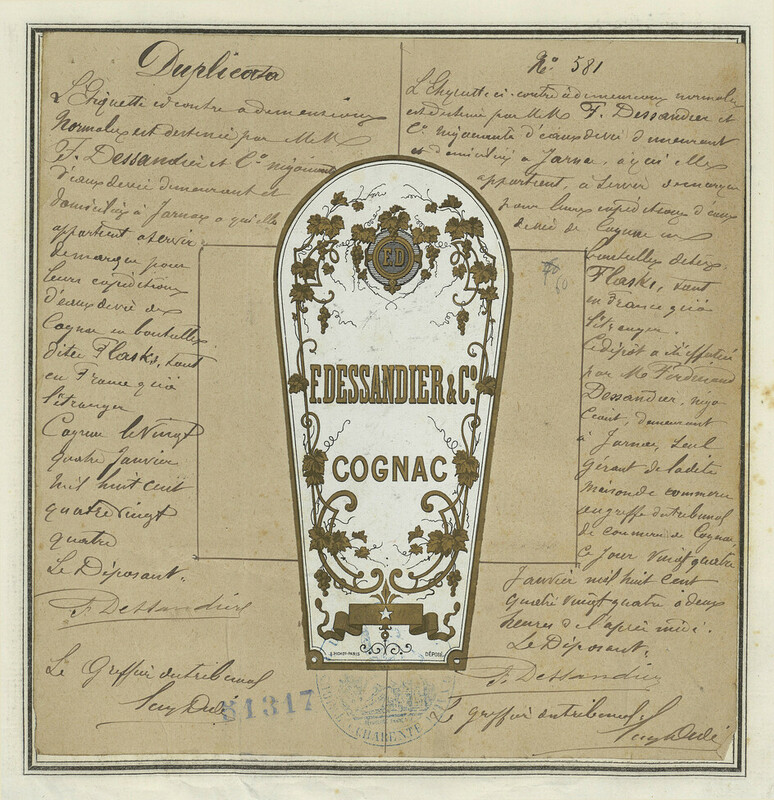 Duplicata
L'Etiquette ci contre a dimensions
Normales est destinée par M.M.
F. Dessandier et Cº négociants
d'eaux de vie demeurant et
domiciliés à Jarnac à qui elle
appartient à servir
de marque pour
leurs expéditions
d'eaux de vie de
Cognac en bouteilles
dites Flasks, tant
en France qu'à
l'étranger
Cognac le Vingt
quatre Janvier
Mil huit cent
quatre vingt
quatre
Le Déposant.
F. Dessandier
Le Greffier du tribunal
81317
Nº 581
L'Etiquette ci-contre à dimensions normales
est destinée par M.M. F. Dessandier et
Cº négociants d'eaux de vie demeurant
et domiciliés à Jarnac, à qui elle
appartient, à servir de marque
pour leurs expéditions d'eaux
de vie de Cognac en
bouteilles dites
Flasks, tant
en France qu'à
l'étranger.
Le dépôt a été effectué
par Mr Ferdinand
Dessandier, négo
ciant, demeurant
à Jarnac, Seul
gérant de ladite
maison de commerce
au greffe du tribunal
de commerce de Cognac
ce jour vingt quatre
Janvier mil huit cent
quatre vingt quatre à deux
heures de l'après midi.
Le Déposant.
F. Dessandier
Le greffier du tribunal
60
ED
F. DESSANDIER & Cº.
COGNAC
PARIS
DÉPOSÉ
CHARENTE